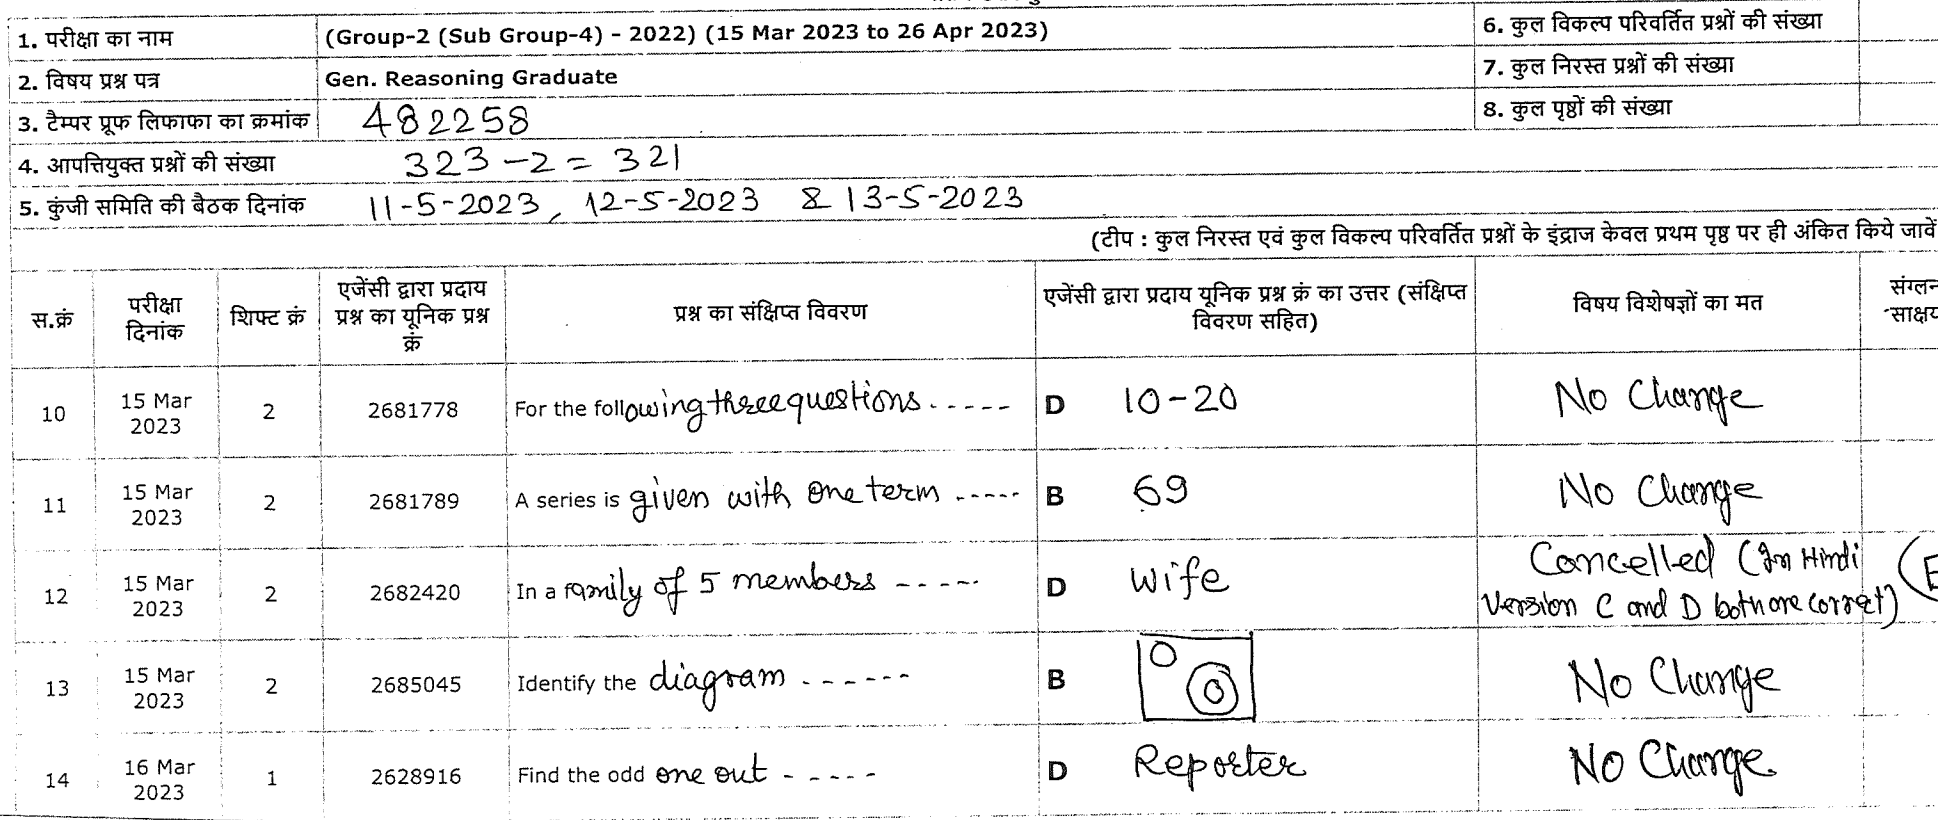 1. परीक्षा का नाम (Group-2 (Sub Group-4) - 2022) (15 Mar 2023 to 26 Apr 2023) 6. कुल विकल्प परिवर्तित प्रश्नों की संख्या
2. विषय प्रश्न पत्र Gen. Reasoning Graduate 7. कुल निरस्त प्रश्नों की संख्या
3. टैम्पर प्रूफ लिफाफा का क्रमांक 482258 8. कुल पृष्ठों की संख्या
4. आपत्तियुक्त प्रश्नों की संख्या 323-2 = 321
5. कुंजी समिति की बैठक दिनांक 11-5-2023, 12-5-2023 & 13-5-2023
(टीप : कुल निरस्त एवं कुल विकल्प परिवर्तित प्रश्नों के इंद्राज केवल प्रथम पृष्ठ पर ही अंकित किये जावें
स.क्रं
परीक्षा
दिनांक
शिफ्ट क्रं
एजेंसी द्वारा प्रदाय
प्रश्न का यूनिक प्रश्न
क्रं
प्रश्न का संक्षिप्त विवरण
एजेंसी द्वारा प्रदाय यूनिक प्रश्न क्रं का उत्तर (संक्षिप्त
विवरण सहित)
विषय विशेषज्ञों का मत
संग्लन
साक्ष्य
10 15 Mar 2 2681778 For the following three questions ----- D 10-20 No Change
2023
11 15 Mar 2 2681789 A series is given with one term ----- B 69 No Change
2023
12 15 Mar 2 2682420 In a family of 5 members ----- D Wife Cancelled (In Hindi
2023 Version C and D both are correct)
13 15 Mar 2 2685045 Identify the diagram ------ B No Change
2023
14 16 Mar 1 2628916 Find the odd one out ----- D Reporter No Change
2023